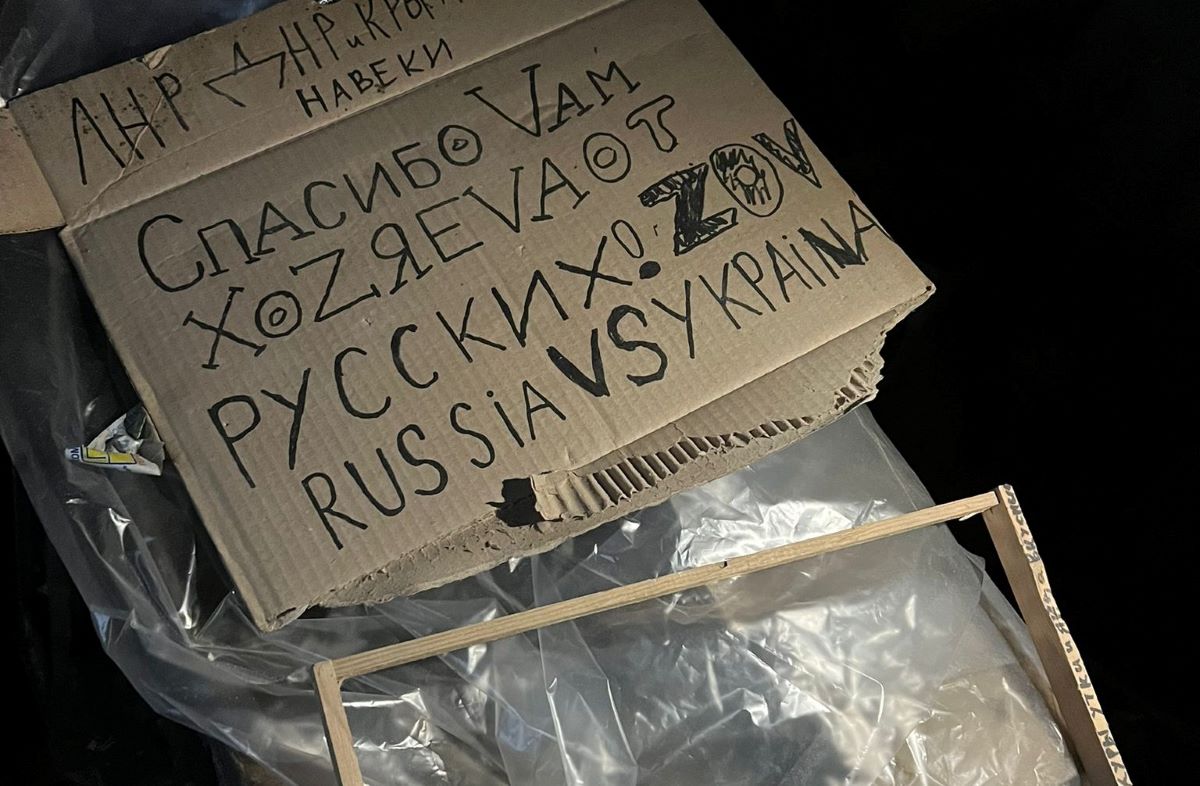 ЛНР ДНР и КРЫМ
НАВЕКИ
СПАСИБО VАМ
ХОZЯЕVА ОТ
РУССКИХ! ZOV
RUSSiA VS УКРАiNА